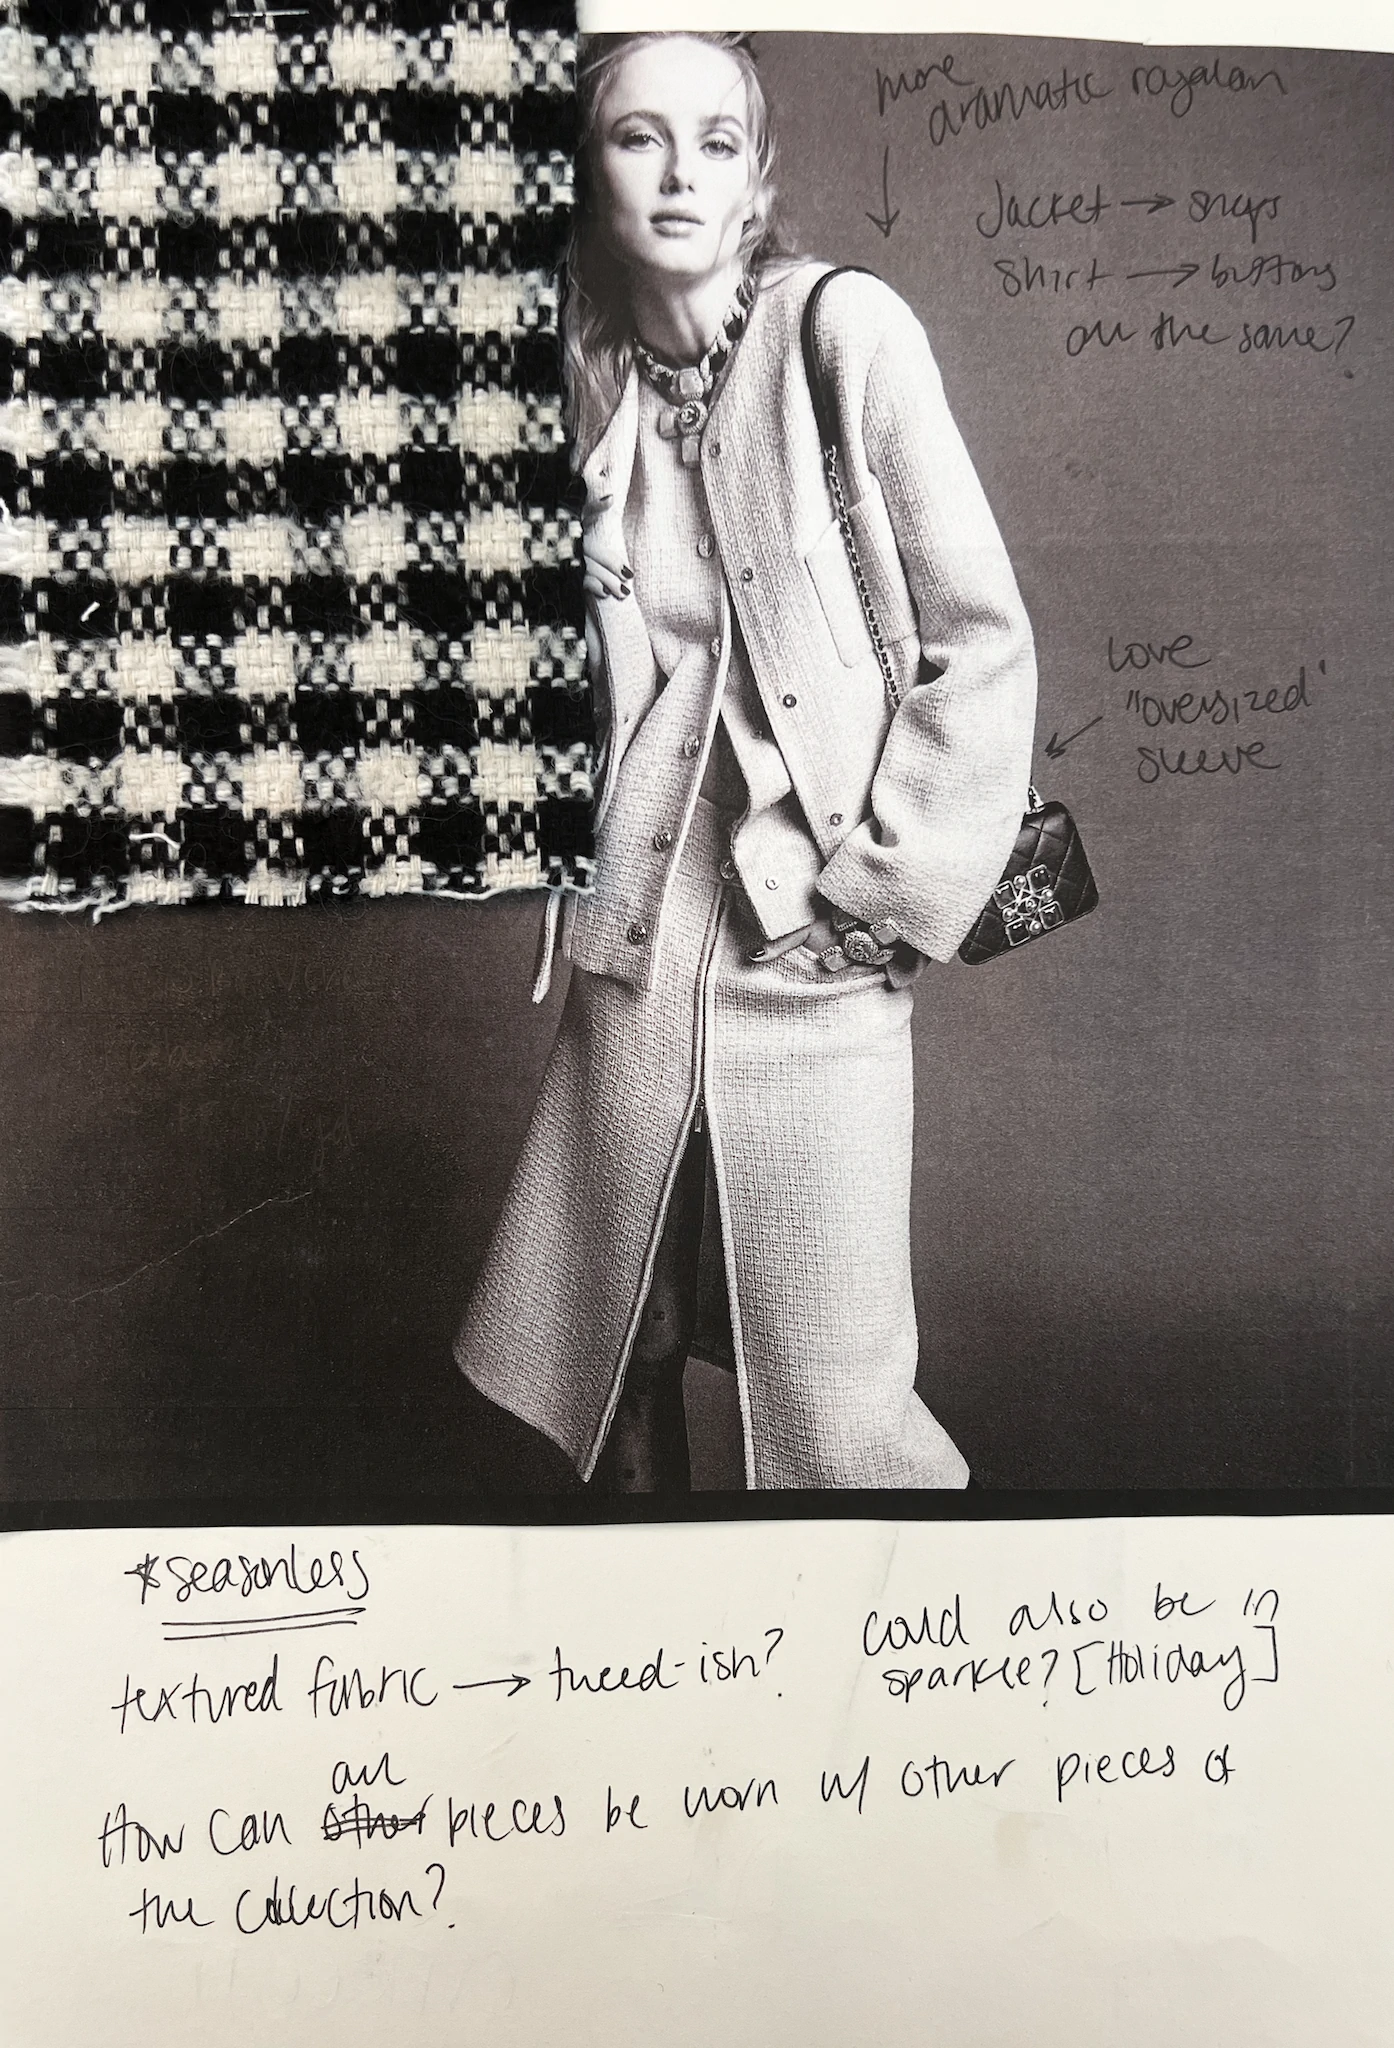 more
dramatic ragalan
Jacket → snaps
Shirt → buttons
all the same?
love
"oversized"
sleeve
*seasonless
textured fabric → tweed-ish?
could also be in
sparkle? [Holiday]
all
How can other pieces be worn w/ other pieces of
the collection?